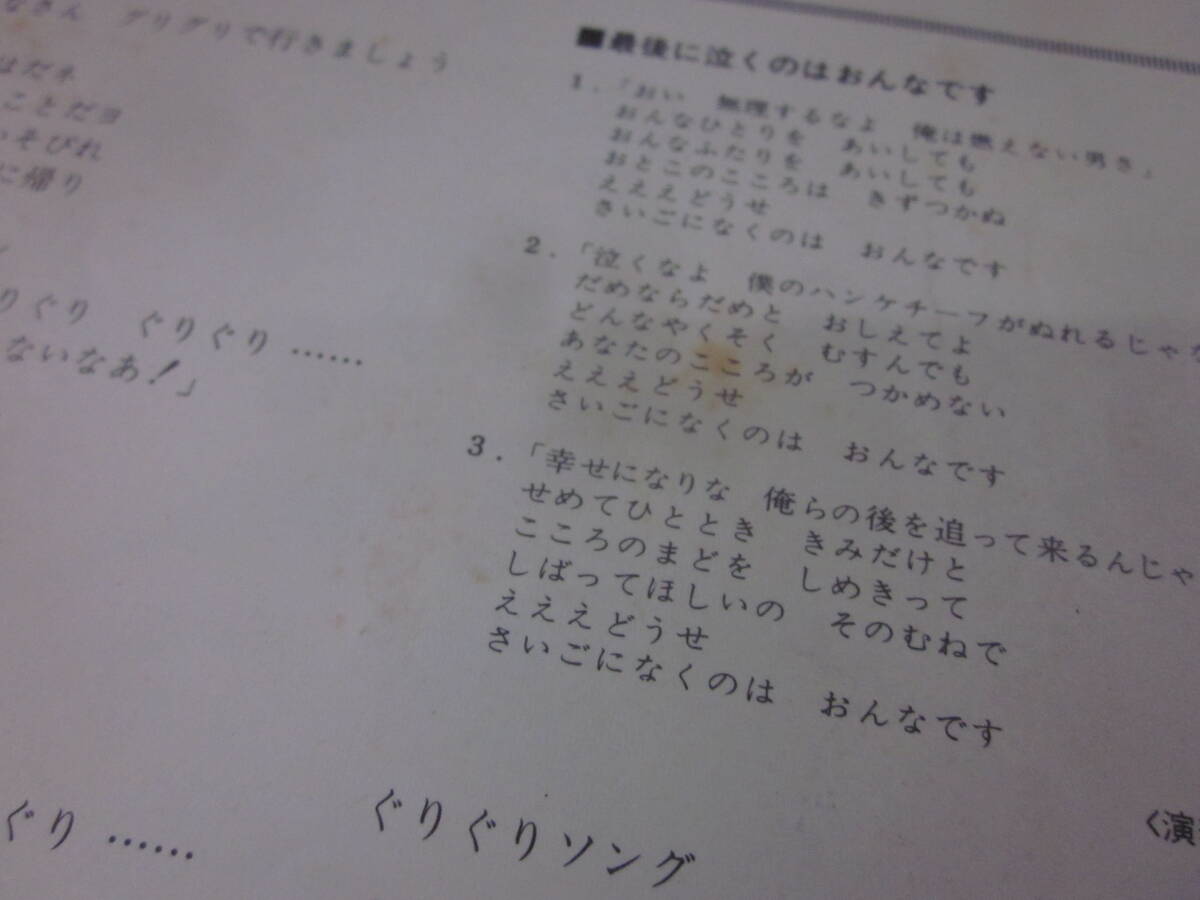 なさん グリグリで行きましょう
はだネ
ことだヨ
いそびれ
に帰り
りぐり ぐりぐり……
ないなあ!」
■最後に泣くのはおんなです
1.「おい 無理するなよ 俺は燃えない男さ」
おんなひとりを あいしても
おんなふたりを あいしても
おとこのこころは きずつかぬ
えええどうせ
さいごになくのは おんなです
2.「泣くなよ 僕のハンケチーフがぬれるじゃな
だめならだめと おしえてよ
どんなやくそく むすんでも
あなたのこころが つかめない
えええどうせ
さいごになくのは おんなです
3.「幸せになりな 俺らの後を追って来るんじゃ
せめてひととき きみだけと
こころのまどを しめきって
しばってほしいの そのむねで
えええどうせ
さいごになくのは おんなです
ぐり…… ぐりぐりソング
〈演